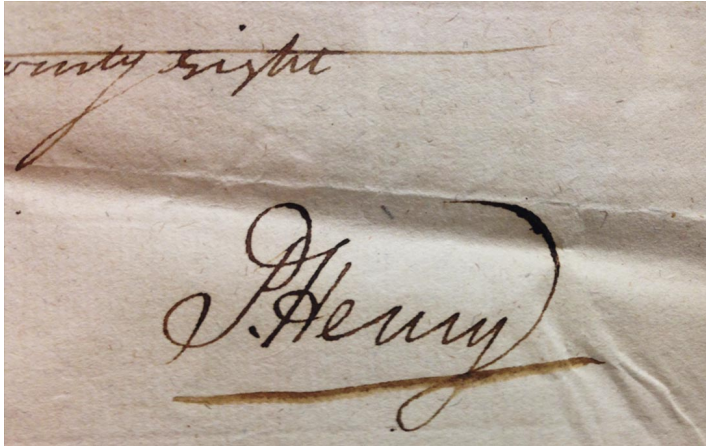 wenty eight
P. Henry